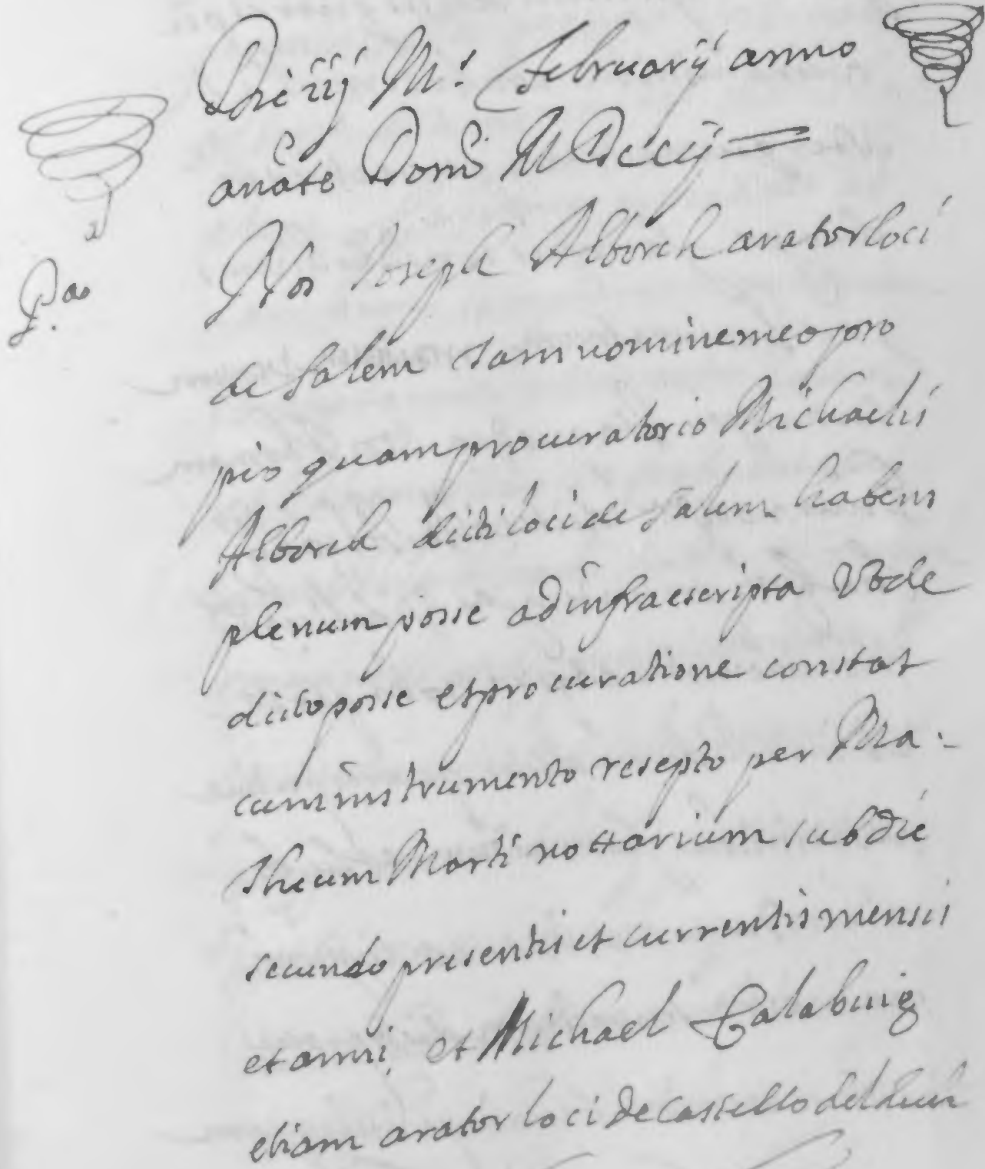 Die iij M.s februarij anno
anate Domi MDCCij
P.ao
Nos Joseph Alborch arator loci
de Salem tam nomine meo pro
pio quam procuratorio Michaelis
Alborch dicti loci de Salem habens
plenum posse ad infraescripta Vt de
dicto posse et procuratione constat
cum instrumento resepto per Ma-
theum Marti nottarium sub die
secundo presentis et currentis mensis
et anni, et Michael Calabuig
etiam arator loci de Castello del